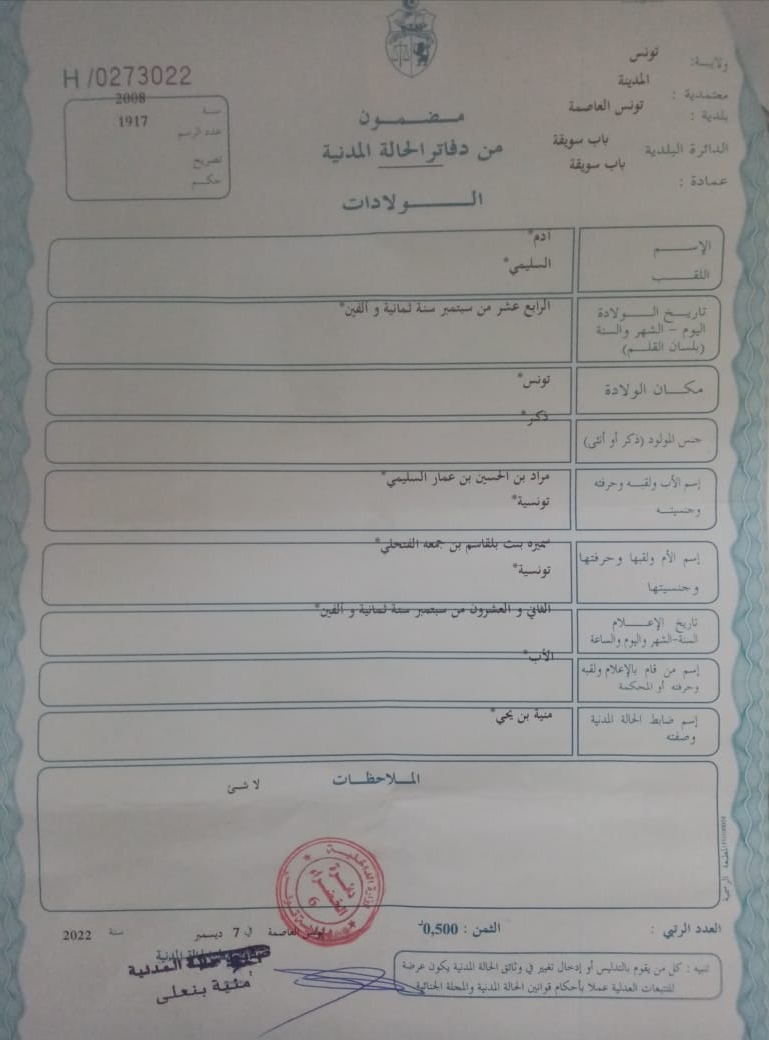 ولايـة: تونس
معتمدية : المدينة
بلدية : تونس العاصمة
الدائرة البلدية باب سويقة
عمادة : باب سويقة
H/0273022
سنة 2008
عدد الرسم 1917
تصريح
حكم
مـضـمـون
من دفاتر الحالة المدنية
الـولادات
الإسـم ادم*
اللقب السليمي*
تاريـخ الـولادة الرابع عشر من سبتمبر سنة ثمانية و ألفين*
اليوم - الشهر والسنة
(بلسان القلـم)
مكـان الولادة تونس*
جنس المولود (ذكر أو أنثى) ذكر*
إسم الأب ولقبـه وحرفته مراد بن الحسين بن عمار السليمي*
وجنسيتـه تونسية*
إسم الأم ولقبها وحرفتها سميره بنت بلقاسم بن جمعه الفتحلي*
وجنسيتها تونسية*
تاريخ الإعـلام الثاني و العشرون من سبتمبر سنة ثمانية و ألفين*
السنة-الشهر واليوم والساعة
إسم من قام بالإعلام ولقبه الأب*
وحرفته أو المحكمة
إسم ضابط الحالة المدنية منية بن يحي*
وصفته
المـلاحظـات
لا شئ
العدد الرتبي :
الثمن : 0,500د
العاصمة في 7 ديسمبر سنة 2022
المدنية
تنبيه : كل من يقوم بالتدليس أو إدخال تغيير في وثائق الحالة المدنية يكون عرضة
للتتبعات العدلية عملا بأحكام قوانين الحالة المدنية والمجلة الجنائية